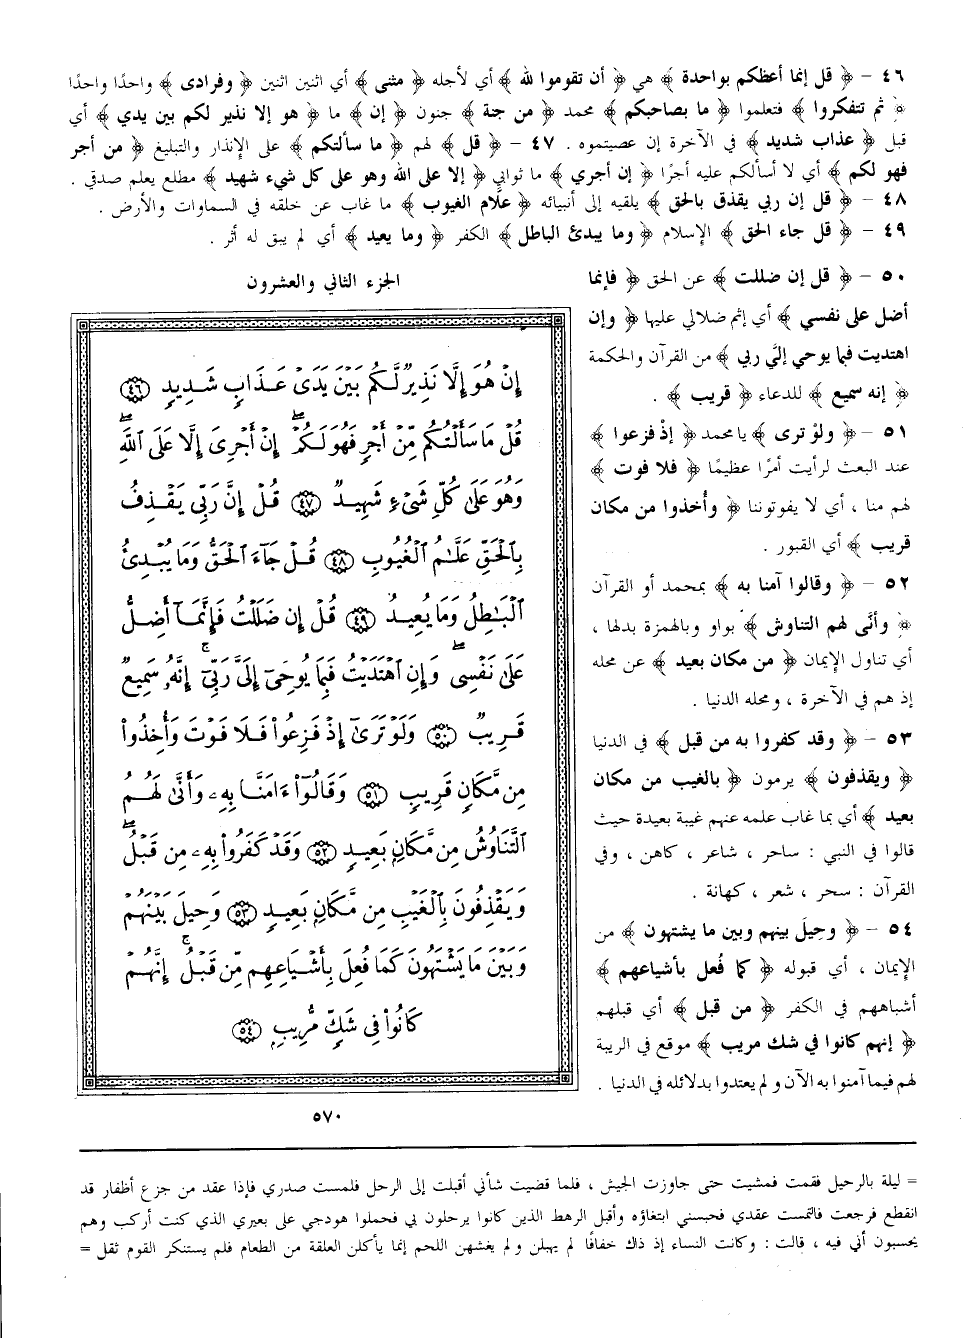 ٤٦ - ﴿ قل إنما أعظكم بواحدة ﴾ هي ﴿ أن تقوموا لله ﴾ أي لأجله ﴿ مثنى ﴾ أي اثنين اثنين ﴿ وفرادى ﴾ واحدًا واحدًا
﴿ ثم تتفكروا ﴾ فتعلموا ﴿ ما بصاحبكم ﴾ محمد ﴿ من جنة ﴾ جنون ﴿ إن ﴾ ما ﴿ هو إلا نذير لكم بين يدي ﴾ أي
قبل ﴿ عذاب شديد ﴾ في الآخرة إن عصيتموه . ٤٧ - ﴿ قل ﴾ لهم ﴿ ما سألتكم ﴾ على الإنذار والتبليغ ﴿ من أجر
فهو لكم ﴾ أي لا أسألكم عليه أجرًا ﴿ إن أجري ﴾ ما ثوابي ﴿ إلا على الله وهو على كل شيء شهيد ﴾ مطلع يعلم صدقي .
٤٨ - ﴿ قل إن ربي يقذق بالحق ﴾ يلقيه إلى أنبيائه ﴿ علَّام الغيوب ﴾ ما غاب عن خلقه في السماوات والأرض .
٤٩ - ﴿ قل جاء الحق ﴾ الإسلام ﴿ وما يبدئ الباطل ﴾ الكفر ﴿ وما يعيد ﴾ أي لم يبق له أثر .
٥٠ - ﴿ قل إن ضللت ﴾ عن الحق ﴿ فإنما
أضل على نفسي ﴾ أي إثم ضلالي عليها ﴿ وإن
اهتديت فبما يوحي إليَّ ربي ﴾ من القرآن والحكمة
﴿ إنه سميع ﴾ للدعاء ﴿ قريب ﴾ .
٥١ - ﴿ ولوْ ترى ﴾ يا محمد ﴿ إذْ فزعوا ﴾
عند البعث لرأيت أمرًا عظيمًا ﴿ فلا فوت ﴾
لهم منا ، أي لا يفوتوننا ﴿ وأُخذوا من مكان
قريب ﴾ أي القبور .
٥٢ - ﴿ وقالوا آمنا به ﴾ بمحمد أو القرآن
﴿ وأنَّى لهم التناوش ﴾ بواو وبالهمزة بدلها ،
أي تناول الإيمان ﴿ من مكان بعيد ﴾ عن محله
إذ هم في الآخرة ، ومحله الدنيا .
٥٣ - ﴿ وقد كفروا به من قبل ﴾ في الدنيا
﴿ ويقذفون ﴾ يرمون ﴿ بالغيب من مكان
بعيد ﴾ أي بما غاب علمه عنهم غيبة بعيدة حيث
قالوا في النبي : ساحر ، شاعر ، كاهن ، وفي
القرآن : سحر ، شعر ، كهانة .
٥٤ - ﴿ وحِيلَ بينهم وبين ما يشتهون ﴾ من
الإيمان ، أي قبوله ﴿ كما فُعل بأشياعهم ﴾
أشباههم في الكفر ﴿ من قبل ﴾ أي قبلهم
﴿ إنهم كانوا في شك مريب ﴾ موقع في الريبة
لهم فيما آمنوا به الآن و لم يعتدوا بدلائله في الدنيا .
الجزء الثاني والعشرون
إِنْ هُوَ إِلَّا نَذِيرٌ لَّكُم بَيْنَ يَدَىْ عَذَابٍ شَدِيدٍ ٤٦
قُلْ مَا سَأَلْتُكُم مِّنْ أَجْرٍ فَهُوَ لَكُمْ ۖ إِنْ أَجْرِىَ إِلَّا عَلَى ٱللَّهِ ۖ
وَهُوَ عَلَىٰ كُلِّ شَىْءٍ شَهِيدٌ ٤٧ قُلْ إِنَّ رَبِّى يَقْذِفُ
بِٱلْحَقِّ عَلَّٰمُ ٱلْغُيُوبِ ٤٨ قُلْ جَآءَ ٱلْحَقُّ وَمَا يُبْدِئُ
ٱلْبَٰطِلُ وَمَا يُعِيدُ ٤٩ قُلْ إِن ضَلَلْتُ فَإِنَّمَآ أَضِلُّ
عَلَىٰ نَفْسِى ۖ وَإِنِ ٱهْتَدَيْتُ فَبِمَا يُوحِىٓ إِلَىَّ رَبِّىٓ ۚ إِنَّهُۥ سَمِيعٌ
قَرِيبٌ ٥٠ وَلَوْ تَرَىٰٓ إِذْ فَزِعُوا۟ فَلَا فَوْتَ وَأُخِذُوا۟
مِن مَّكَانٍ قَرِيبٍ ٥١ وَقَالُوٓا۟ ءَامَنَّا بِهِۦ وَأَنَّىٰ لَهُمُ
ٱلتَّنَاوُشُ مِن مَّكَانٍۭ بَعِيدٍ ٥٢ وَقَدْ كَفَرُوا۟ بِهِۦ مِن قَبْلُ ۖ
وَيَقْذِفُونَ بِٱلْغَيْبِ مِن مَّكَانٍۭ بَعِيدٍ ٥٣ وَحِيلَ بَيْنَهُمْ
وَبَيْنَ مَا يَشْتَهُونَ كَمَا فُعِلَ بِأَشْيَاعِهِم مِّن قَبْلُ ۚ إِنَّهُمْ
كَانُوا۟ فِى شَكٍّ مُّرِيبٍۭ ٥٤
٥٧٠
= ليلة بالرحيل فقمت فمشيت حتى جاوزت الجيش ، فلما قضيت شأني أقبلت إلى الرحل فلمست صدري فإذا عقد من جزع أظفار قد
انقطع فرجعت فالتمست عقدي فحبسني ابتغاؤه وأقبل الرهط الذين كانوا يرحلون بي فحملوا هودجي على بعيري الذي كنت أركب وهم
يحسبون أني فيه ، قالت : وكانت النساء إذ ذاك خفافًا لم يهبلن و لم يغشهن اللحم إنما يأكلن العلقة من الطعام فلم يستنكر القوم ثقل =